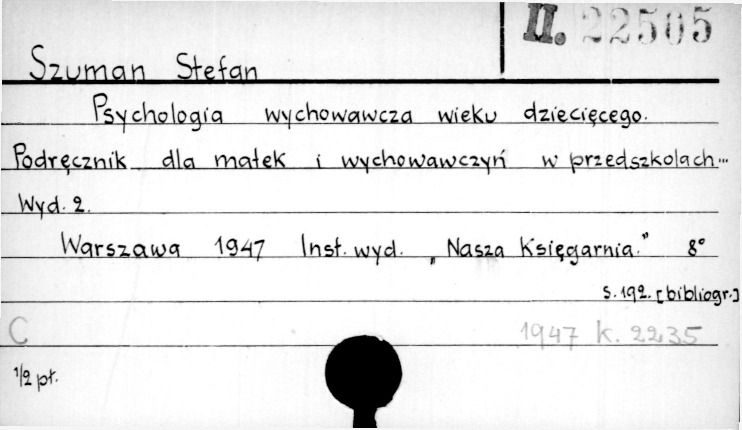 II. 22505
Szuman Stefan
Psychologia wychowawcza wieku dziecięcego.
Podręcznik dla małek i wychowawczyń w przedszkolach...
Wyd. 2.
Warszawa 1947 Inst. wyd. „Nasza Księgarnia." 8°
s. 192. [bibliogr.]
C 1947 k. 2235
1/2 pł.